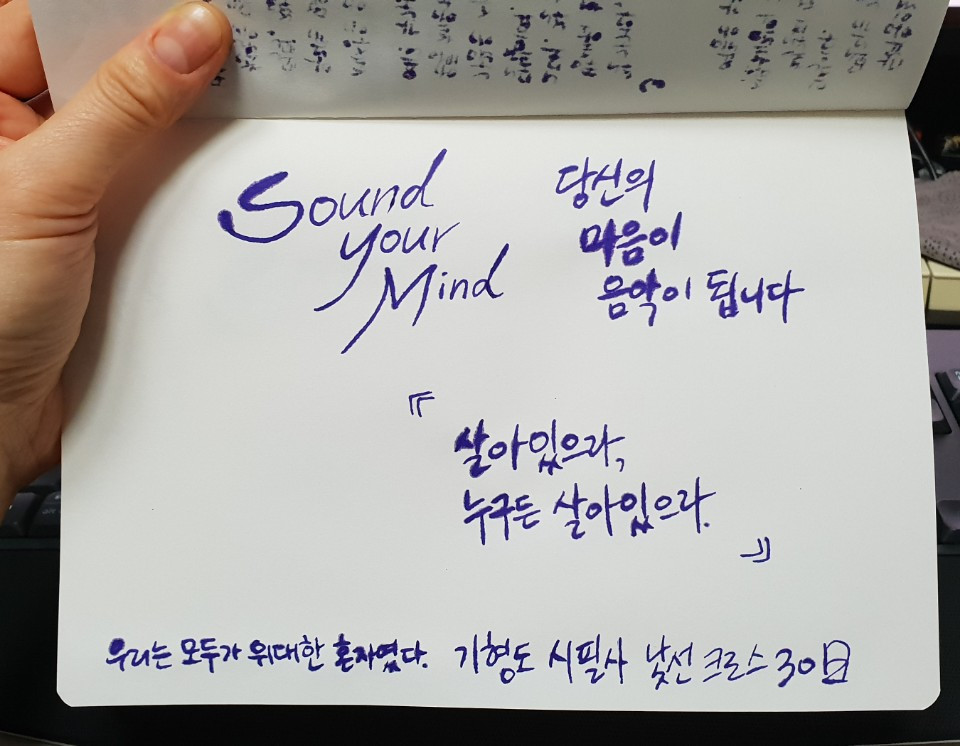 Sound
your
Mind
당신의
마음이
음악이 됩니다
『
살아있으라,
누구든 살아있으라.
』
우리는 모두가 위대한 혼자였다. 기형도 시필사 낯선 크로스 30日